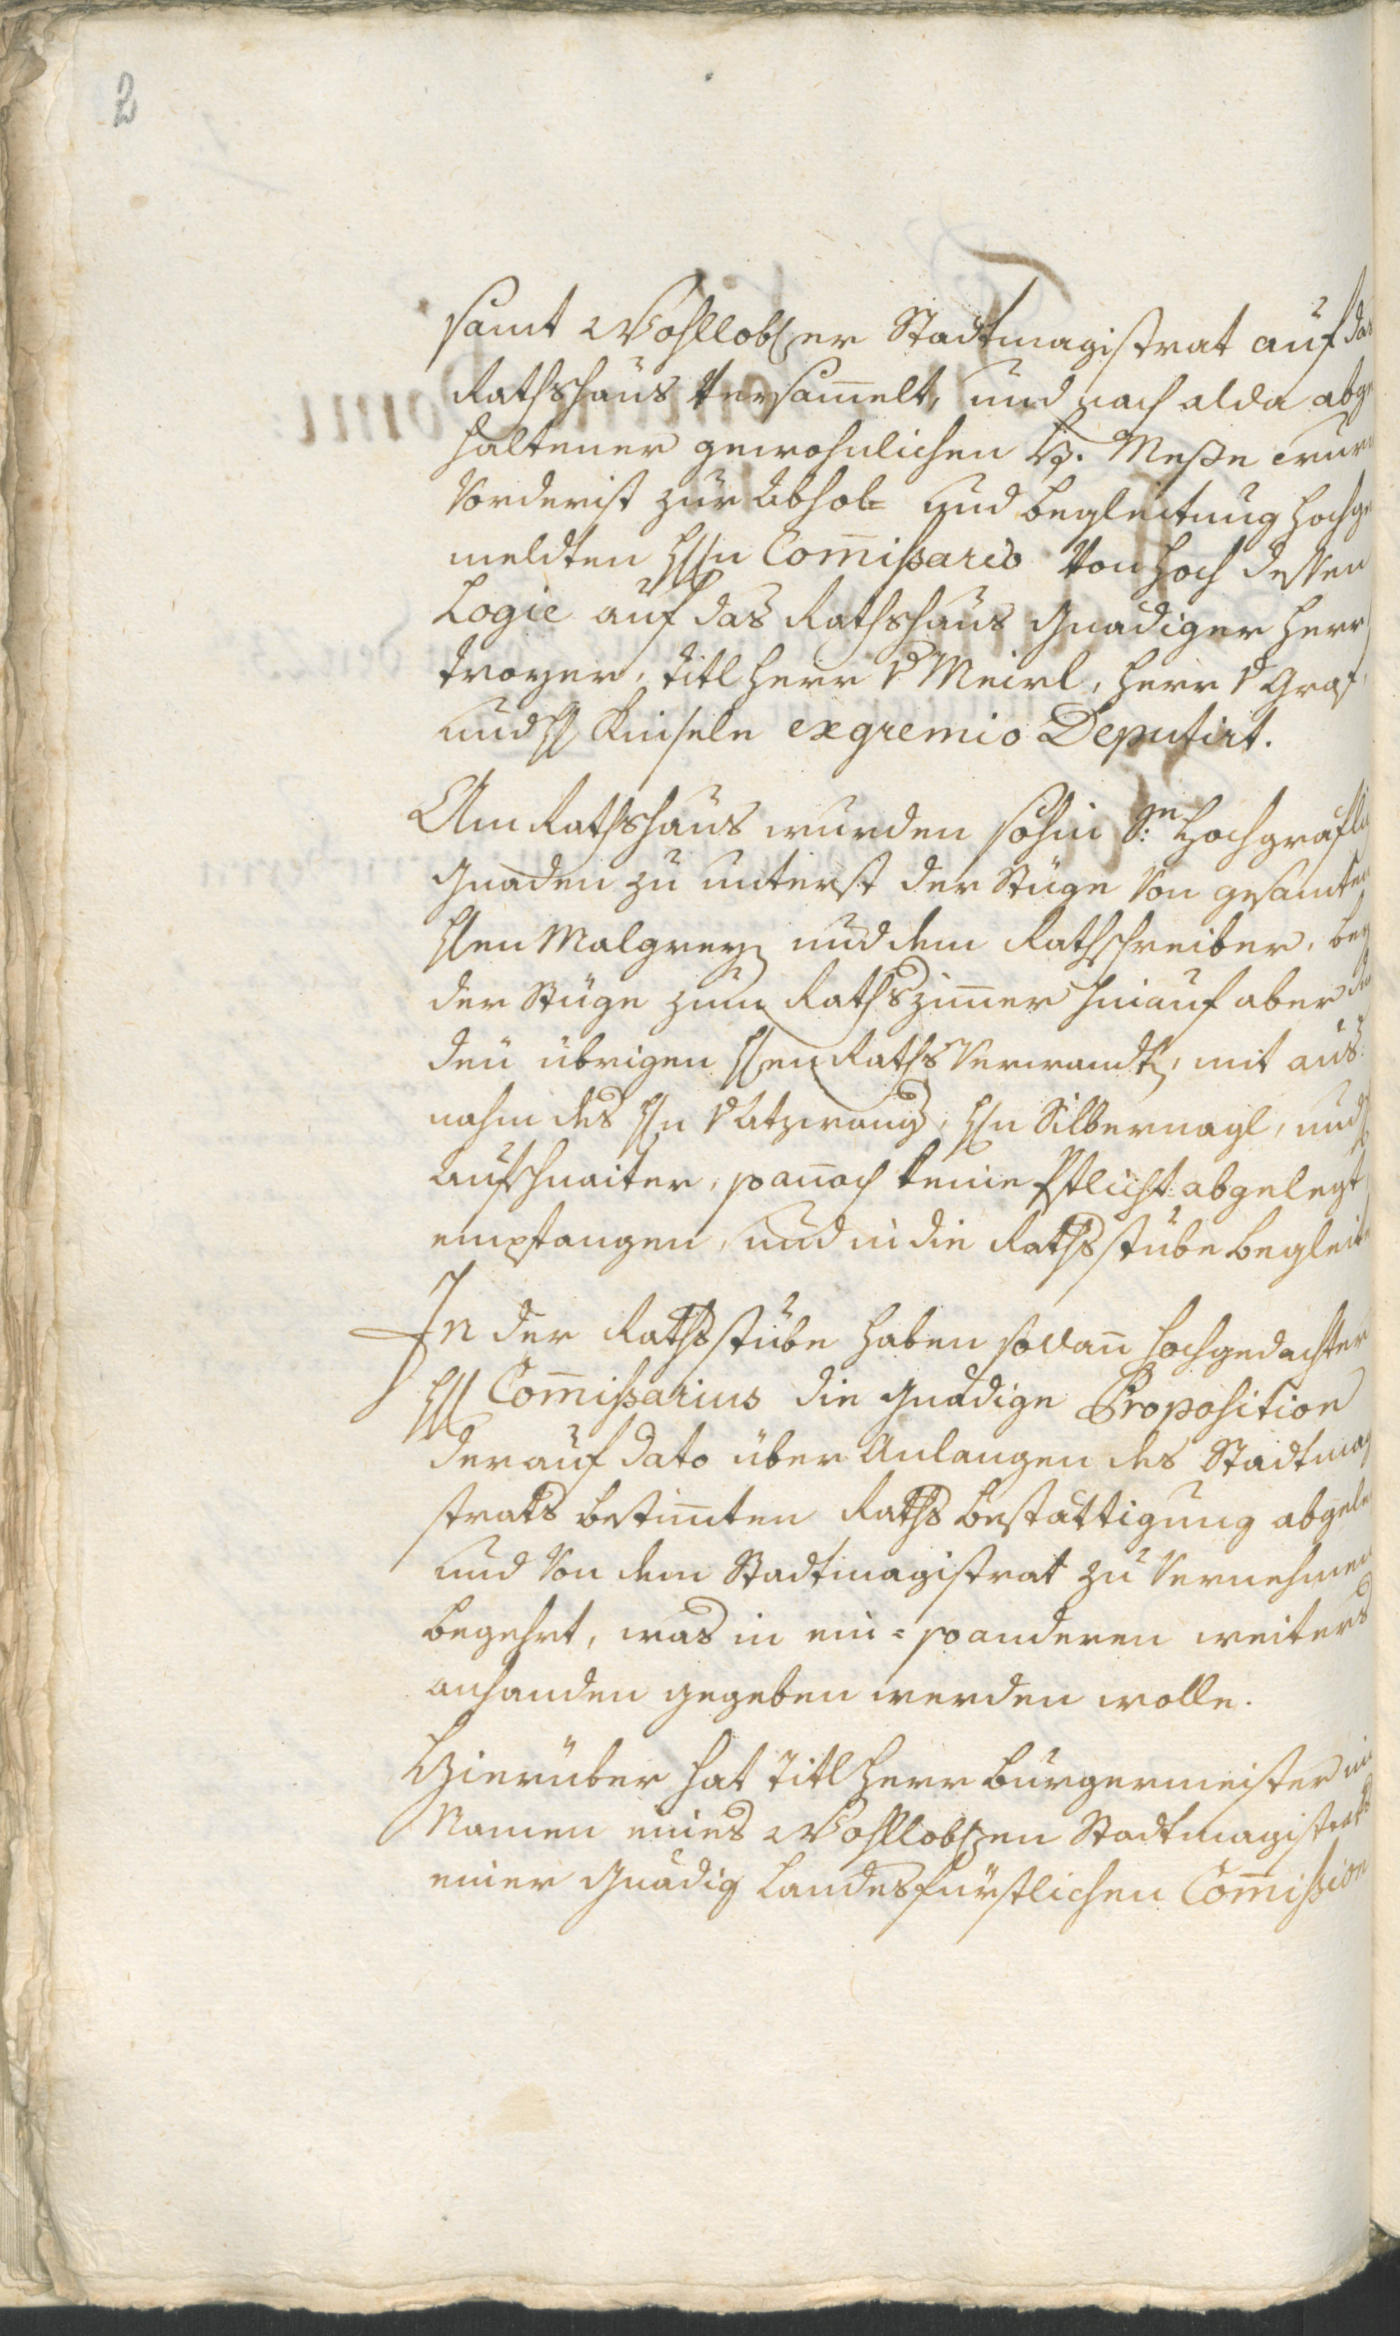 2
samt Wohllobl:er Stadtmagistrat auf das
Rathshaus Versam̄elt, und nach alda abge
haltener gewohnlichen H. Meße wurd
Vorderist zur Abhol= und begleitung hochge
meldten H: Com̄ißario Von hoch dessen
Logie auf das Rathshaus Gnädiger Herr
troyer, titl Herr v Meirl, Herr v Graf,
und H: ex gremio Deputirt.
Am Rathshaus wurden sohin Sr: Hochgräfl
Gnaden zu unterst der Stüge Von gesamten
H:en und dem Rathschreiber, bey
der Stüge zum Rathszim̄er hinauf aber
den übrigen H:en Raths Verwandt, mit aus
nahm des H:n v Atzwang, H:n Silbernagl, und
Aufschnaiter, so an̄och keine Pflicht abgelegt
empfangen, und in die Rathsstube begleit
In der Rathsstube haben sodan̄ hochgedachter
H: Com̄ißarius die gnädige Proposition
der auf dato über Anlangen des Stadtmag
strats bestim̄ten Raths bestättigung abgele
und Von dem Stadtmagistrat zu Vernehmen
begehrt, was in ein= so anderen weiters
anhanden gegeben werden wolle.
Hierüber hat Titl Herr burgermeister in
Namen eines Wohllobl:en Stadtmagistrats
einer Gnädig Landesfürstlichen Com̄ißion